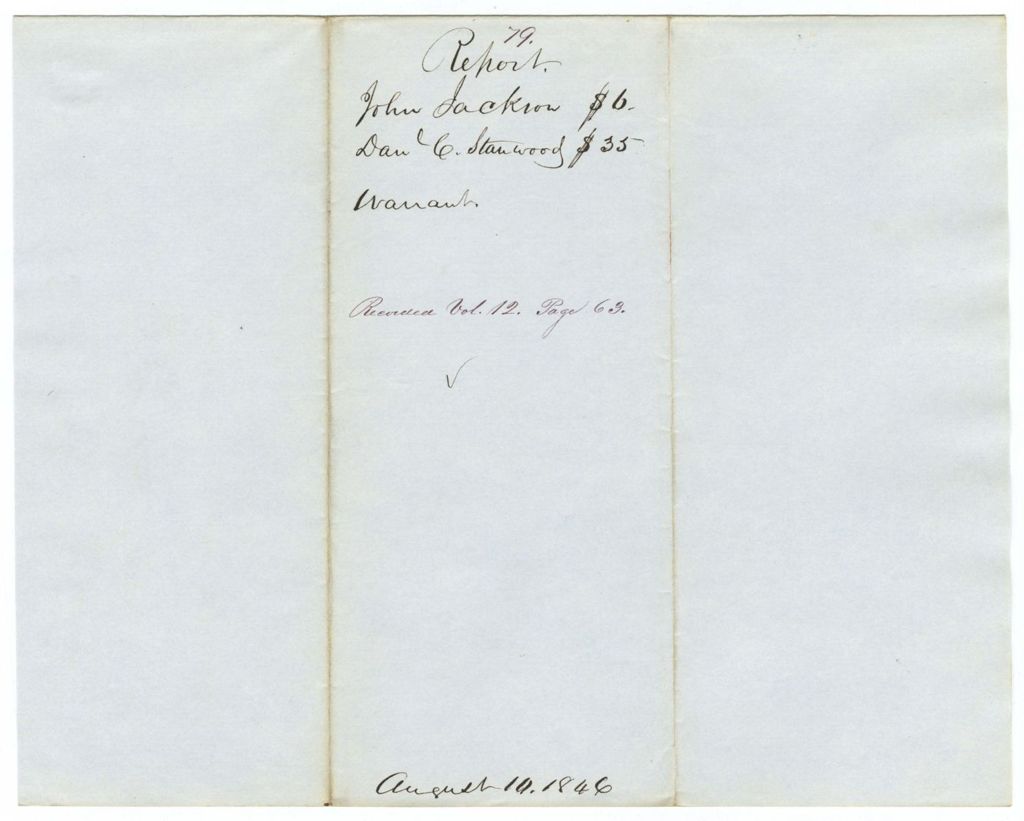 79.
Report.
John Jackson $6.
Danl C. Stanwood $35
Warrant.
Recorded Vol. 12. Page 63.
August 10. 1846